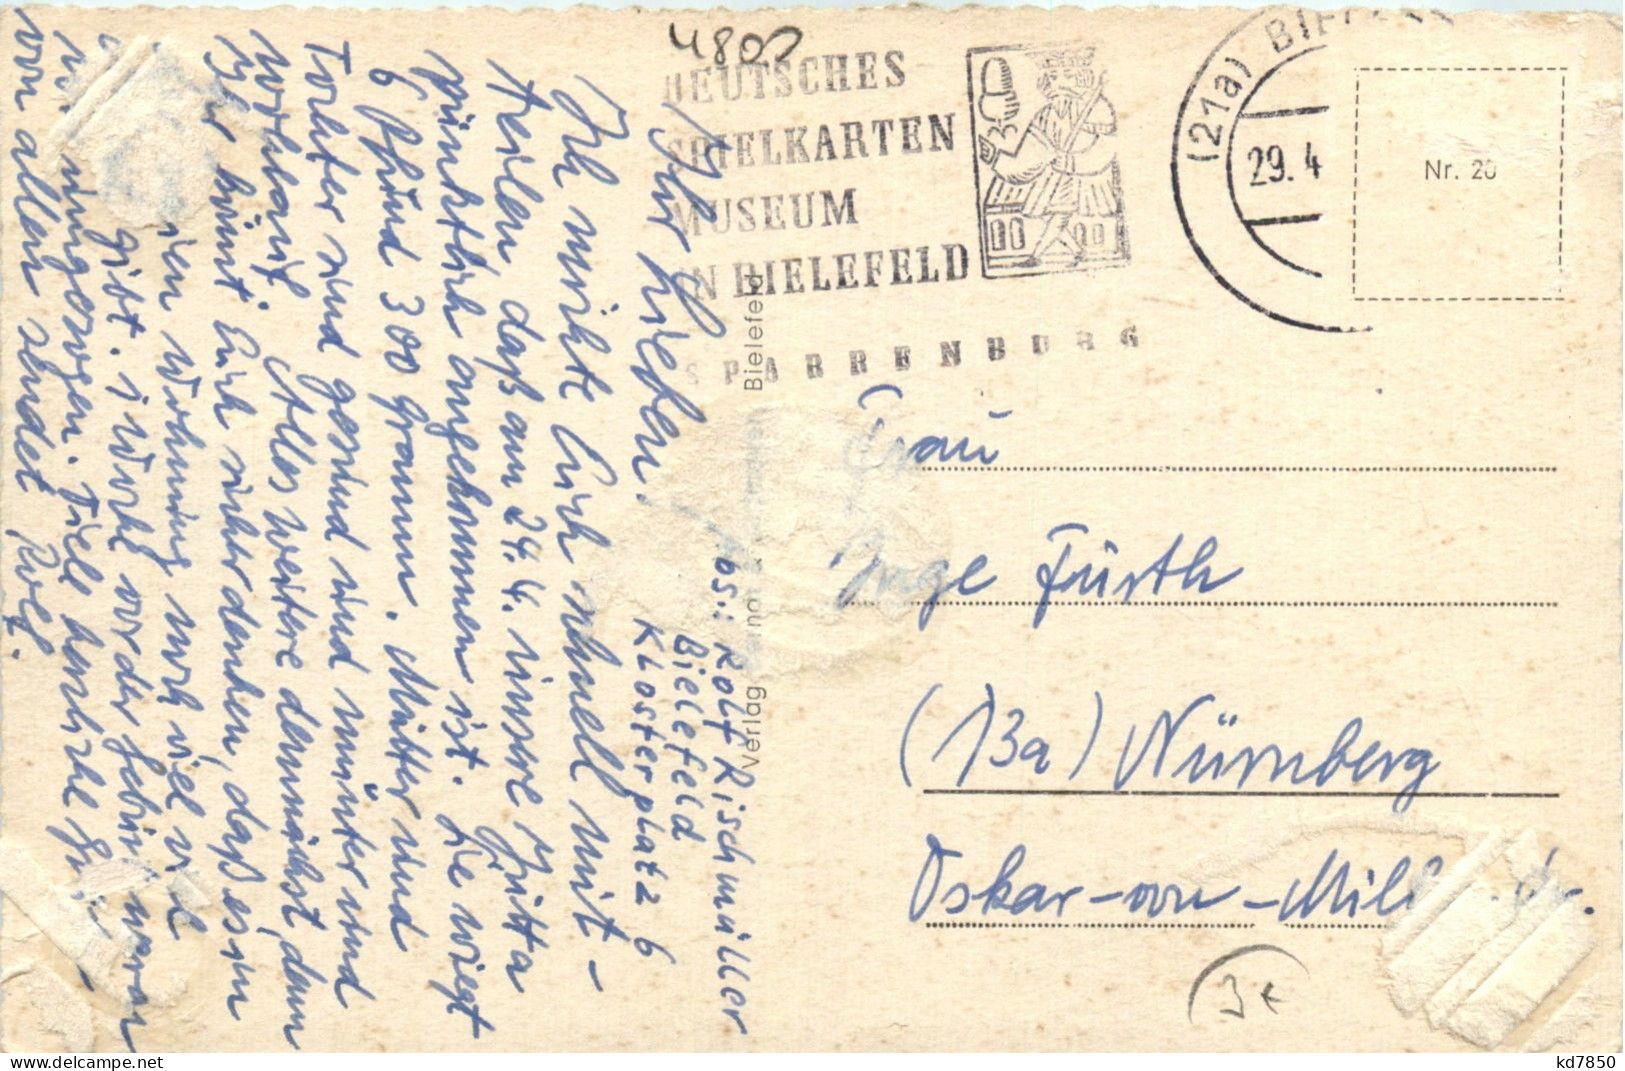 4800
DEUTSCHES
SPIELKARTEN
MUSEUM
IN BIELEFELD
SPARRENBURG
(21a) BIELE
29. 4
Nr. 20
Ihr Lieben!
Ich möchte Euch schnell mit-
teilen, daß am 24.4. unsere Jutta
pünktlich angekommen ist. Sie wiegt
6 Pfund 300 Gramm. Mutter und
Tochter sind gesund und munter und
wohlauf. Alles weitere demnächst, denn
Ihr könnt Euch sicher denken, daß es in
Wohnung noch viel viel
gibt. Wohl vor der waren
umgezogen. Viele herzliche Grü-
von allen sendet Rolf.
Abs.: Rolf Rischmüller
Bielefeld
Klosterplatz 6
Verlag Bielefeld
Frau
Inge Fürth
(13a) Nürnberg
Oskar-von-Mill Str.
kd7850